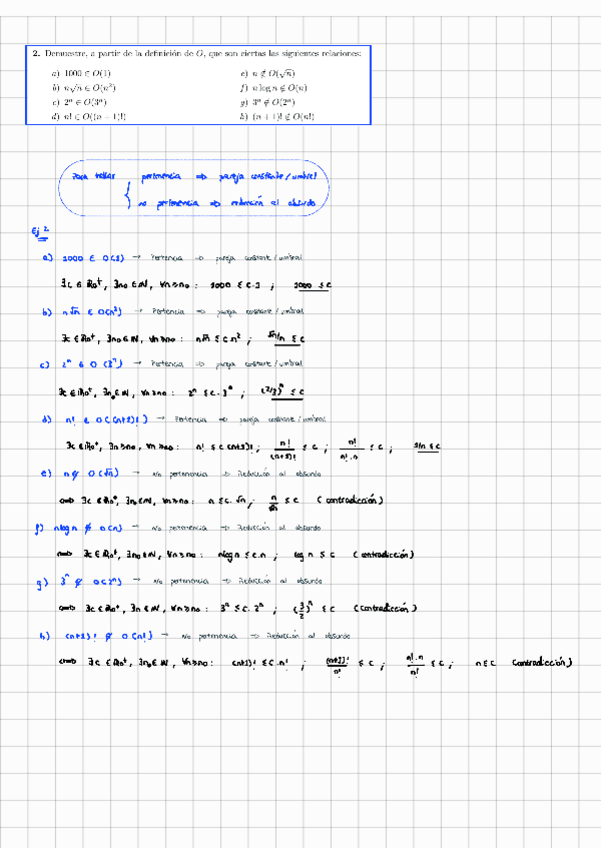 2. Demuestre, a partir de la definición de O, que son ciertas las siguientes relaciones:
a) 1000 ∈ O(1)
b) n√n ∈ O(n²)
c) 2ⁿ ∈ O(3ⁿ)
d) n! ∈ O((n + 1)!)
e) n ∉ O(√n)
f) n log n ∉ O(n)
g) 3ⁿ ∉ O(2ⁿ)
h) (n + 1)! ∉ O(n!)
Para hallar { pertenencia ⇒ pareja constante / umbral
no pertenencia ⇒ reducción al absurdo
Ej 2.
a) 1000 ∈ O(1) → Pertenencia ⇒ pareja constante / umbral
∃c ∈ ℝ₀⁺, ∃n₀ ∈ ℕ, ∀n ≥ n₀ : 1000 ≤ c·1 ; 1000 ≤ c
b) n√n ∈ O(n²) → Pertenencia ⇒ pareja constante / umbral
∃c ∈ ℝ₀⁺, ∃n₀ ∈ ℕ, ∀n ≥ n₀ : n√n ≤ c·n² ; √n/n ≤ c
c) 2ⁿ ∈ O(3ⁿ) → Pertenencia ⇒ pareja constante / umbral
∃c ∈ ℝ₀⁺, ∃n₀ ∈ ℕ, ∀n ≥ n₀ : 2ⁿ ≤ c·3ⁿ ; (2/3)ⁿ ≤ c
d) n! ∈ O((n+1)!) → Pertenencia ⇒ pareja constante / umbral
∃c ∈ ℝ₀⁺, ∃n ≥ n₀, ∀n ≥ n₀ : n! ≤ c (n+1)! ; n!/(n+1)! ≤ c ; n!/n!·n ≤ c ; 1/n ≤ c
e) n ∉ O(√n) → No pertenencia ⇒ Reducción al absurdo
∃c ∈ ℝ₀⁺, ∃n₀ ∈ ℕ, ∀n ≥ n₀ : n ≤ c·√n ; n/√n ≤ c (contradicción)
f) n log n ∉ O(n) → No pertenencia ⇒ Reducción al absurdo
∃c ∈ ℝ₀⁺, ∃n₀ ∈ ℕ, ∀n ≥ n₀ : n log n ≤ c·n ; log n ≤ c (contradicción)
g) 3ⁿ ∉ O(2ⁿ) → No pertenencia ⇒ Reducción al absurdo
∃c ∈ ℝ₀⁺, ∃n ∈ ℕ, ∀n ≥ n₀ : 3ⁿ ≤ c·2ⁿ ; (3/2)ⁿ ≤ c (contradicción)
h) (n+1)! ∉ O(n!) → No pertenencia ⇒ Reducción al absurdo
∃c ∈ ℝ₀⁺, ∃n₀ ∈ ℕ, ∀n ≥ n₀ : (n+1)! ≤ c·n! ; (n+1)!/n! ≤ c ; n!·n/n! ≤ c ; n ≤ c (contradicción)